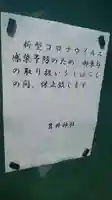 新型コロナウイルス
感染予防のため 御朱印
の取り扱いをしばらく
の間、休止致します
井神社